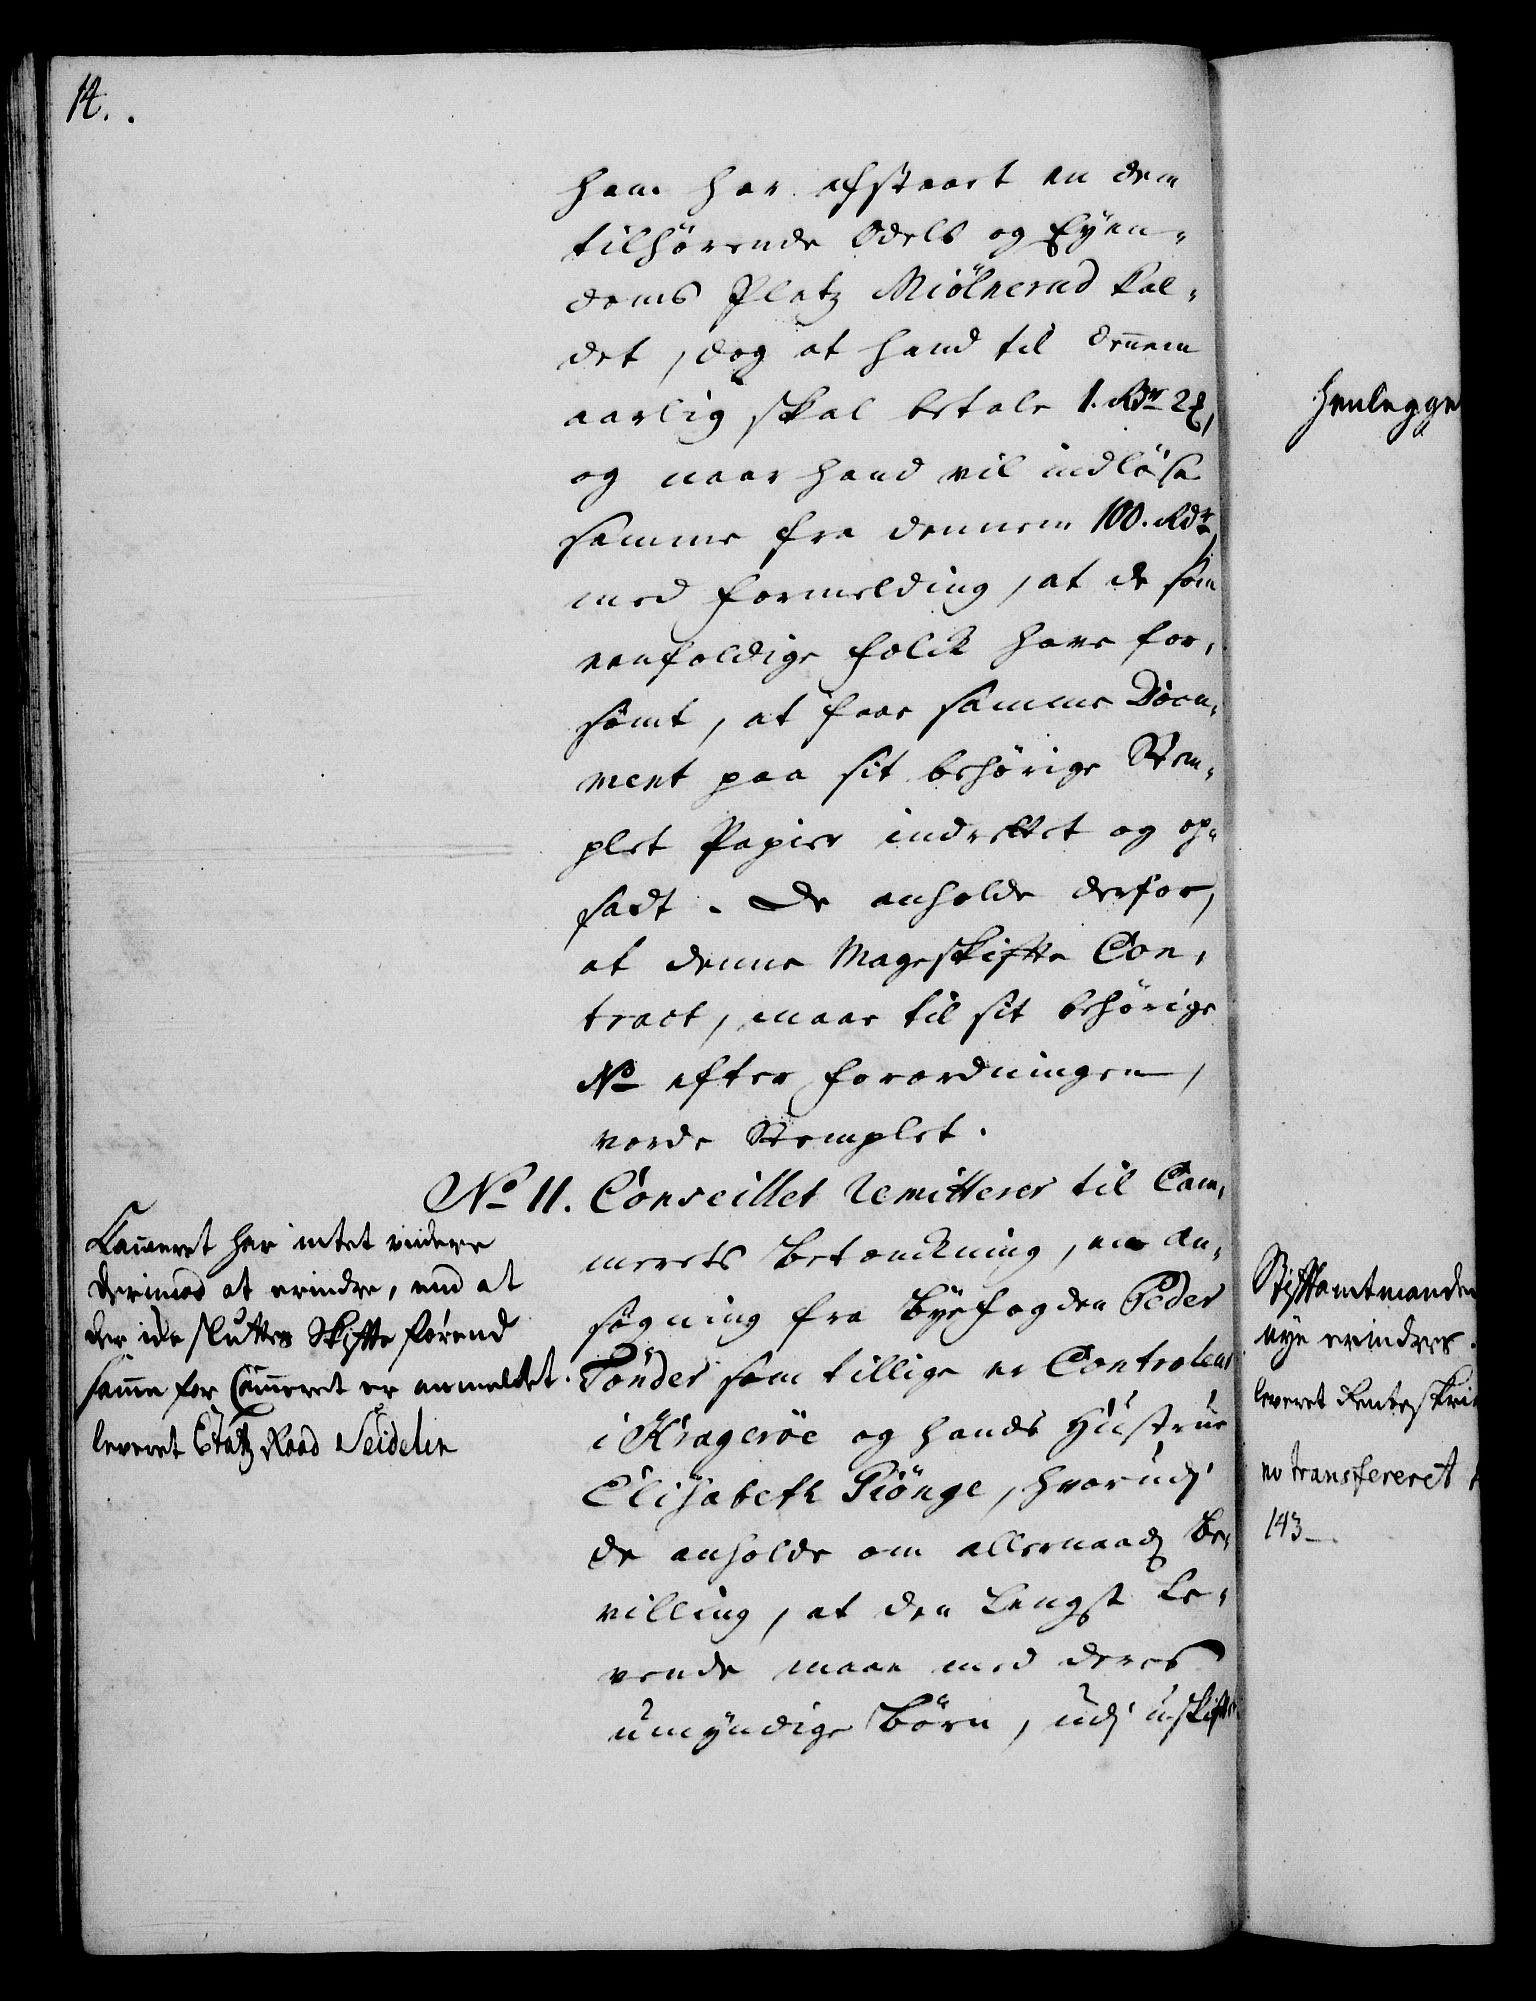 14.
ham har afstaaet en dem
tilhørende Odels og Eÿen-
doms Platz Miölnerud kal-
det, dog at hand til dennem
aarlig skal betale 1. Rdr 2 ,
og naar hand vil indløse
samme fra dennem 100. Rdr
med formelding, at de som
eenfoldige folck have for-
sömt, at faae samme Docu-
ment paa sit behörige Stem-
plet Papier indrettet og op-
sadt. De anholde derfor,
at denne Mageskifte Con-
tract, maae til sit behörige
No efter Forordningen,
vorde Stemplet.
No 11. Conseillet remitterer til Cam-
merets Betænckning, en An-
søgning fra Bÿefogden Peder
Tönder som tillige er Controleur
i Kragerøe og hands Hustrue
Elisabeth Piönge, hvorudj
de anholde om allernaad Be-
villing, at den Længst Le-
vende maae med deres
umÿndige Börn, udj uskifte
Cammeret har intet videre
derimod at erindre, end at
der iche sluttes Skifte förend
samme for Cammeret er anmeldet.
leveret Etatz Raad Seidelin
henlegge
Stiftamtmanden
nÿe erindres.
leveret Renteskri
no transfereret
143